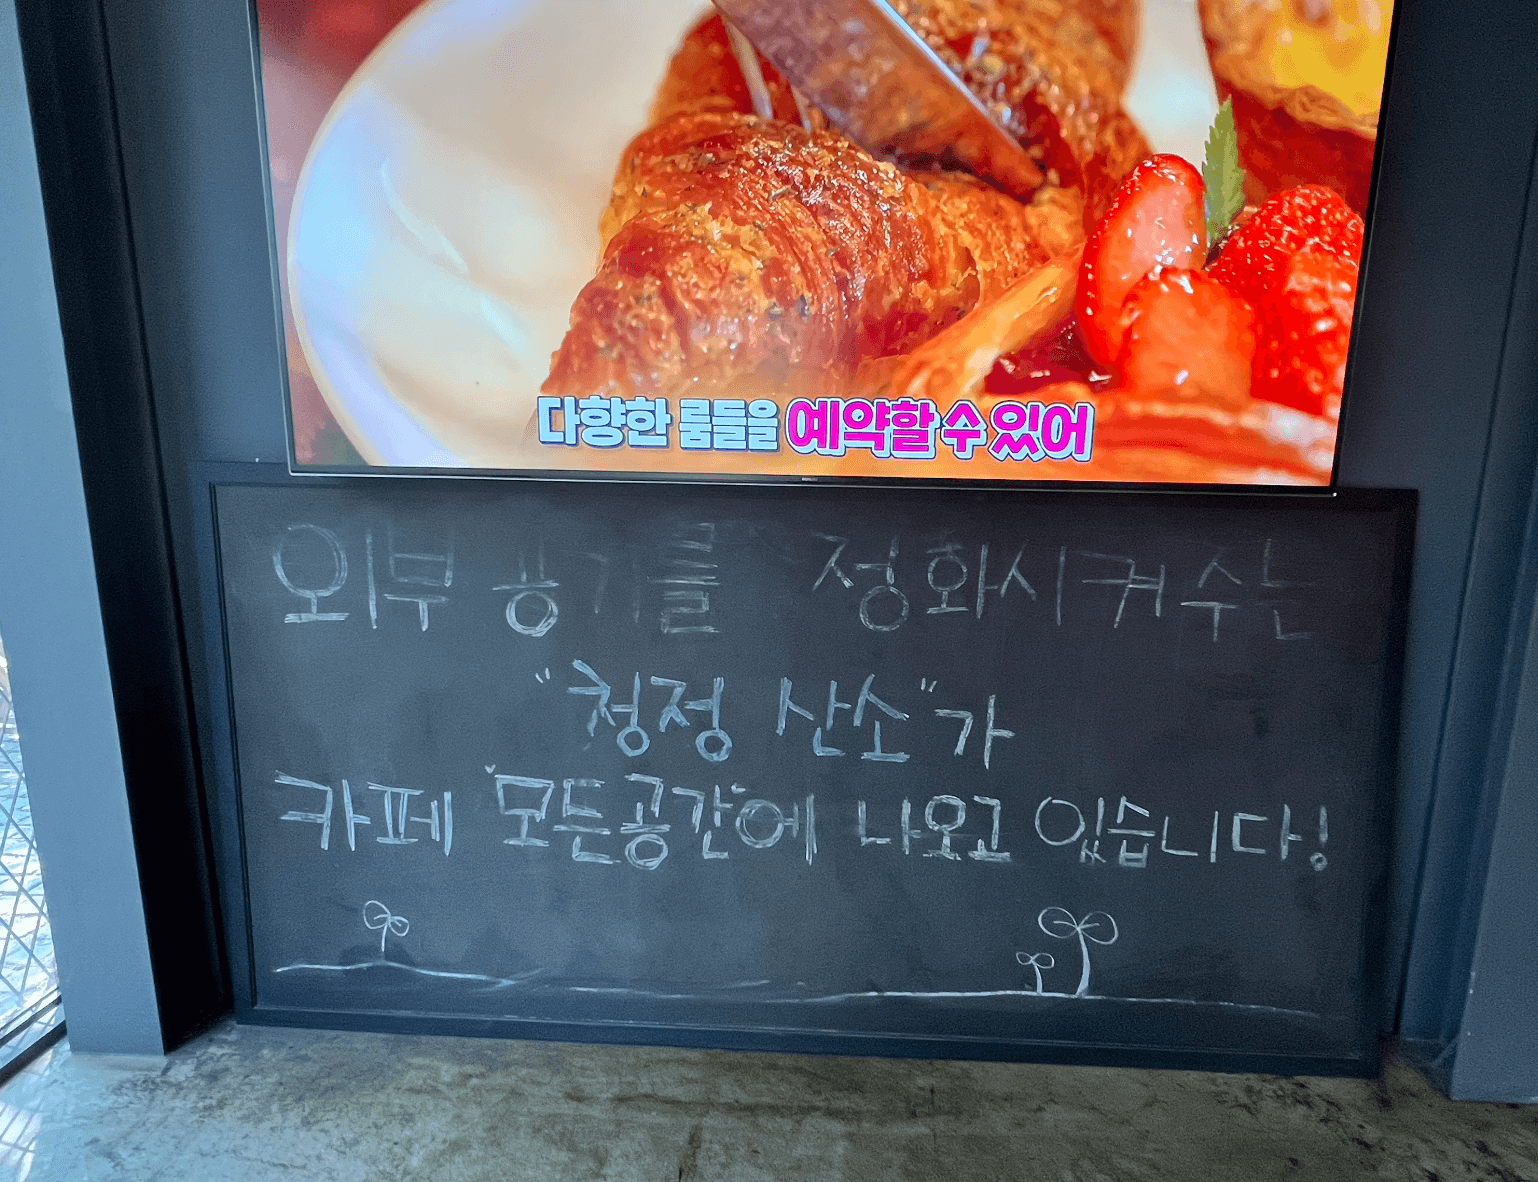 다양한 룸들을 예약할 수 있어
외부 공기를 정화시켜 주는
"청정 산소"가
카페 "모든공간"에 나오고 있습니다!